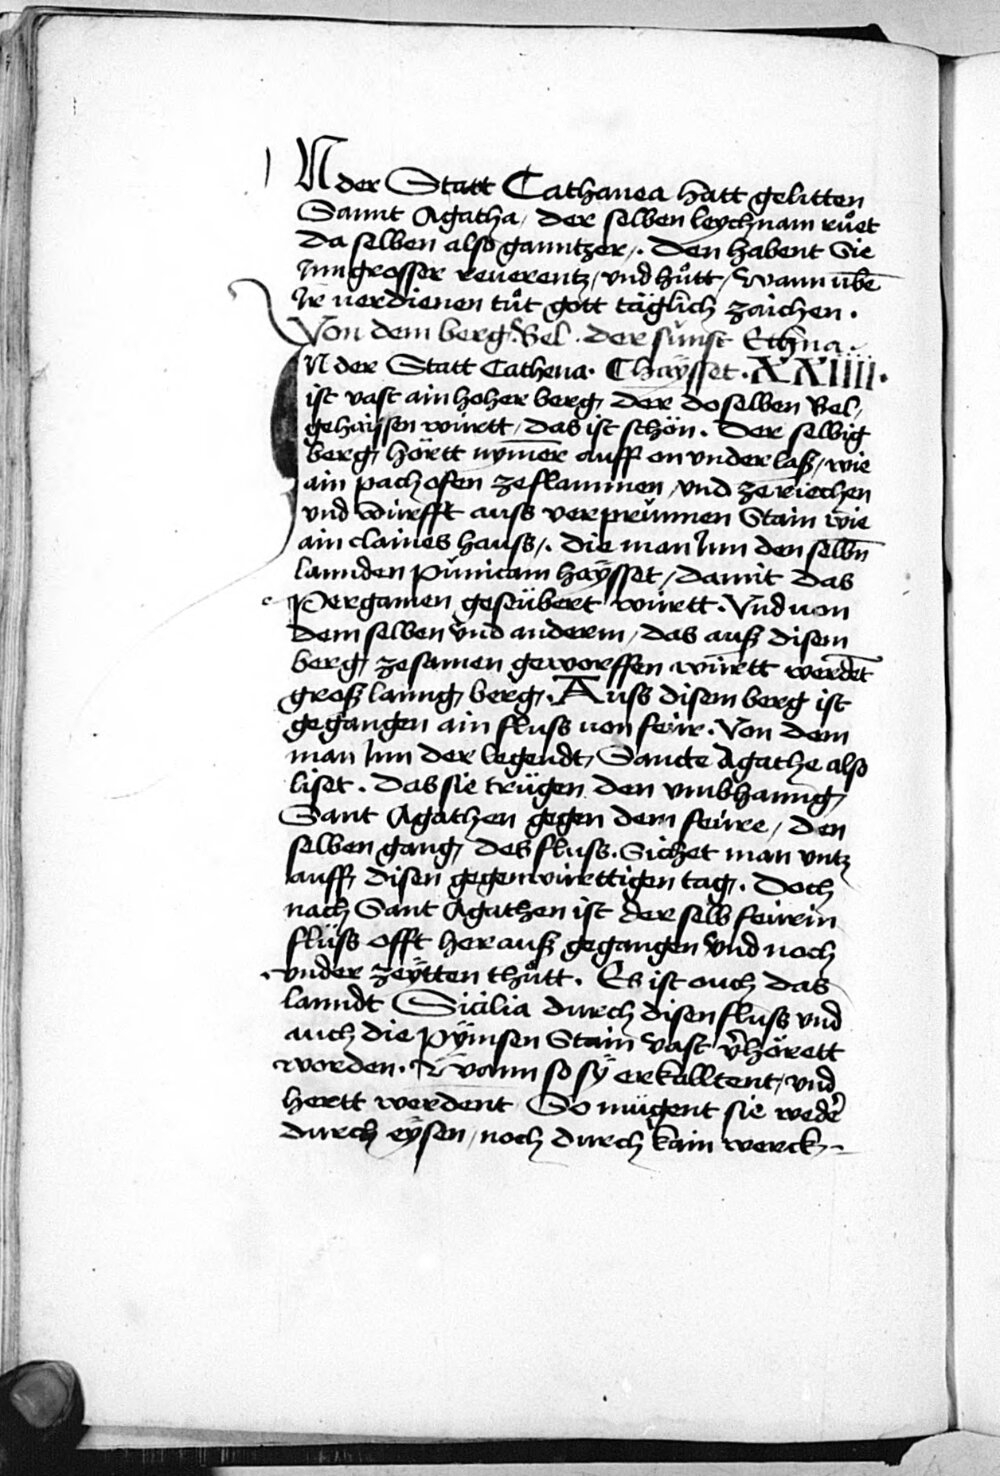 N der Statt Cathanea hatt gelitten
Sannt Agatha / der selben leychnam růet
da selben also ganntzer /. den habent Sie
Inn grosser reuerentz / vnd hůtt / wann vm̄be
Ir̄ uerdienen tůt gott täglich zaichen .
Von dem berg Bel . der sunst Ethna .
IN der Statt Cathena . C haÿsset . XXIIII .
ist vast ain hoher berg / der doselben Bel /
gehaÿssen württ / das ist schön . der selbig
berg / hörtt nym̄er auff on vnderlaß / wie
ain pachofen zeflammen / vnd ze riechen
vnd würfft auss verprünnen Stain wie
ain claines hauss /. die man Inn den selbn̄
lannden Punicam haÿsset / damit das
Pergamen geseübert württ . Vnd uon
dem selben vnd anderm / das auß disem
berg / zesamen geworffen württ werdet̄
groß lanng berg /. Auss disem berg ist
gegangen ain fluss uon feür . Von dem
man Inn der legendt / Sancte Agathe also
liset . das sie trügen den vmbhanng /
Sant Agathen gegen dem feüre / den
selben gang / des fluss . Sichet man vntz
auff / disen gegenwürttigen tag /. doch
nach Sant Agathen ist der selb feürin
flüss offt herauß gegangen vnd noch
vnder zeÿtten thůtt . Es ist ouch das
lanndt Sicilia durch disen fluss vnd
auch die pÿmsen Stain vast v̄hörett
worden . Wann so sÿ erkalltent / vnd
hertt werdent So mügent sie weder̄
durch eÿsen / noch durch kain werck /